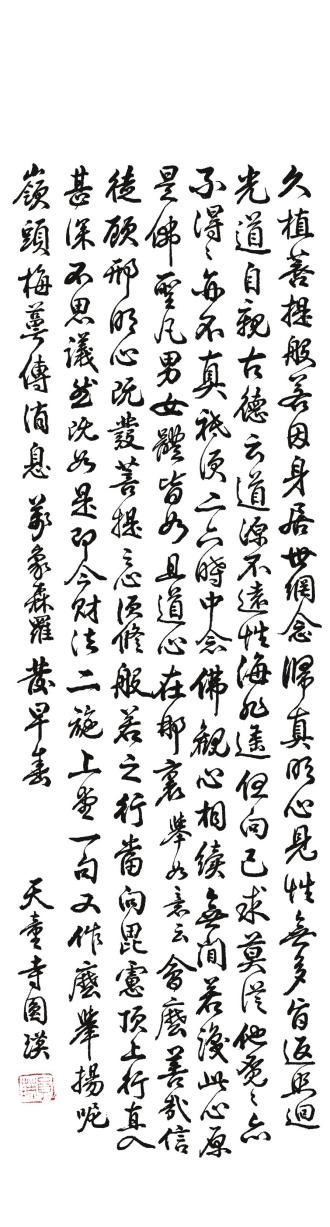 久植菩提般若因身居世網念歸真明心見性無多旨返照迴
光道自親古德云道源不遠性海非遙但向己求莫從他覓覓亦
不得得亦不真祇須二六時中念佛觀心相續無間若後此心原
是佛聖凡男女體皆如且道心在那裏舉如意云會麼善哉信
徒願邢明心既發菩提之心須修般若之行當向毘盧頂上行直入
甚深不思議然既如是即今財法二施上堂一句又作麼舉揚呢
嶺頭梅蕚傳消息萬象森羅發早春
天童寺圓瑛